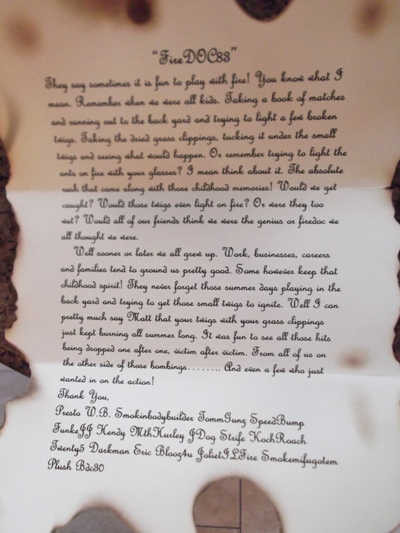 "FireDOC83"
They say sometimes it is fun to play with fire! You know what I
mean. Remember when we were all kids. Taking a book of matches
and running out to the back yard and trying to light a few broken
twigs. Taking the dried grass clippings, tucking it under the small
twigs and seeing what would happen. Or remember trying to light the
ants on fire with your glasses? I mean think about it. The absolute
rush that came along with those childhood memories! Would we get
caught? Would those twigs even light on fire? Or were they too
wet? Would all of our friends think we were the genius or firedoc we
all thought we were.
Well sooner or later we all grew up. Work, businesses, careers
and families tend to ground us pretty good. Some however keep that
childhood spirit! They never forget those summer days playing in the
back yard and trying to get those small twigs to ignite. Well I can
pretty much say Matt that your twigs with your grass clippings
just kept burning all summer long. It was fun to see all those hits
being dropped one after one, victim after victim. From all of us on
the other side of those bombings........ And even a few who just
wanted in on the action!
Thank You,
Presto W.B. Smokinbodybuilder TommGunz SpeedBump
FunkeJJ Hendy MthHurley JDog Strife KochRoach
Twenty5 Darkman Eric Blooz4u JolietILFire Smokemifugotem
Plush Bdc30